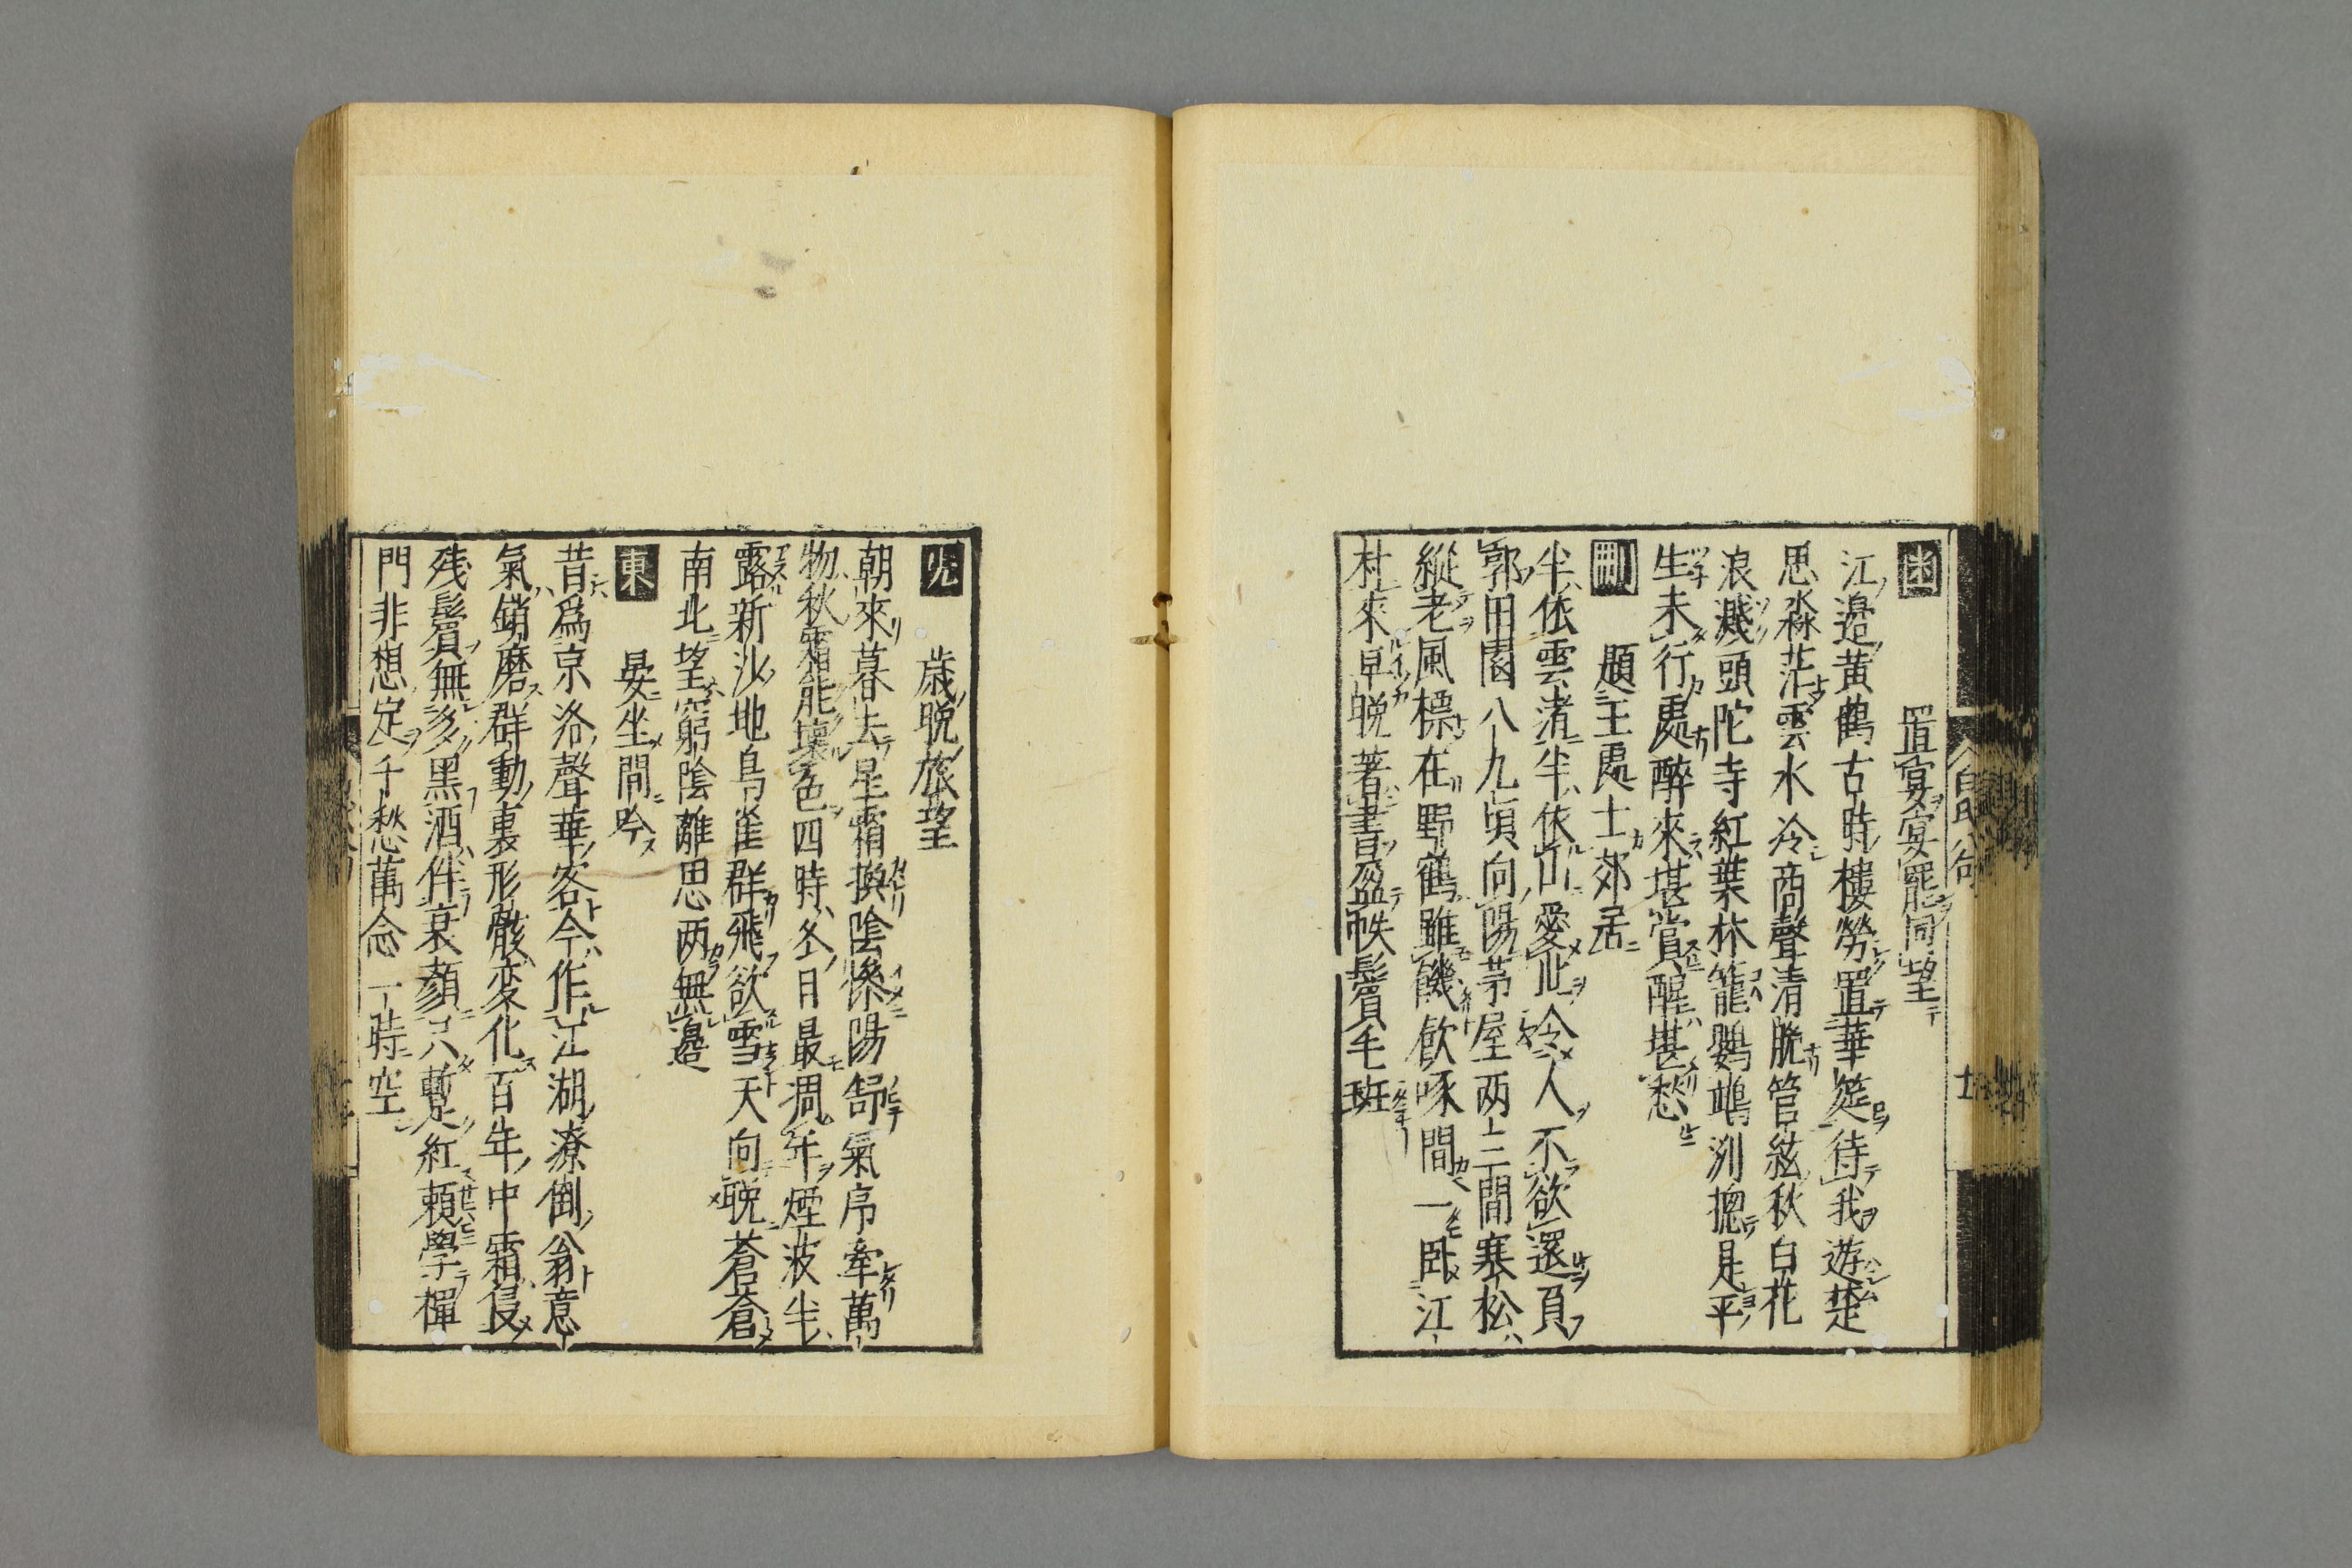 置宴宴罷同望
江邉黄鶴古時樓勞置華筵待我遊楚
思淼茫雲水冷商聲清脆管絃秋白花
浪濺頭陀寺紅葉林籠鸚鵡洲摠是平
生未行處醉來堪賞醒堪愁
刪 題王處士郊居
半依雲渚半依山愛此令人不欲還負
郭田園八九頃向陽茅屋两三間寒松
縱老風標在野鶴雖饑飲啄間一臥江
村來早晩著書盈帙鬢毛斑
先 歳晩旅望
朝來暮去星霜換陰慘陽舒氣序牽萬
物秋霜能壞色四時冬日最凋年煙波半
露新沙地鳥雀群飛欲雪天向晩蒼蒼
南北望窮陰離思两無邉
東 晏坐間吟
昔爲京洛聲華客今作江湖潦倒翁意
氣銷磨群動裏形骸変化百年中霜侵
残鬢無多黒酒伴衰顔只暫紅頼學禪
門非想定千愁萬念一時空